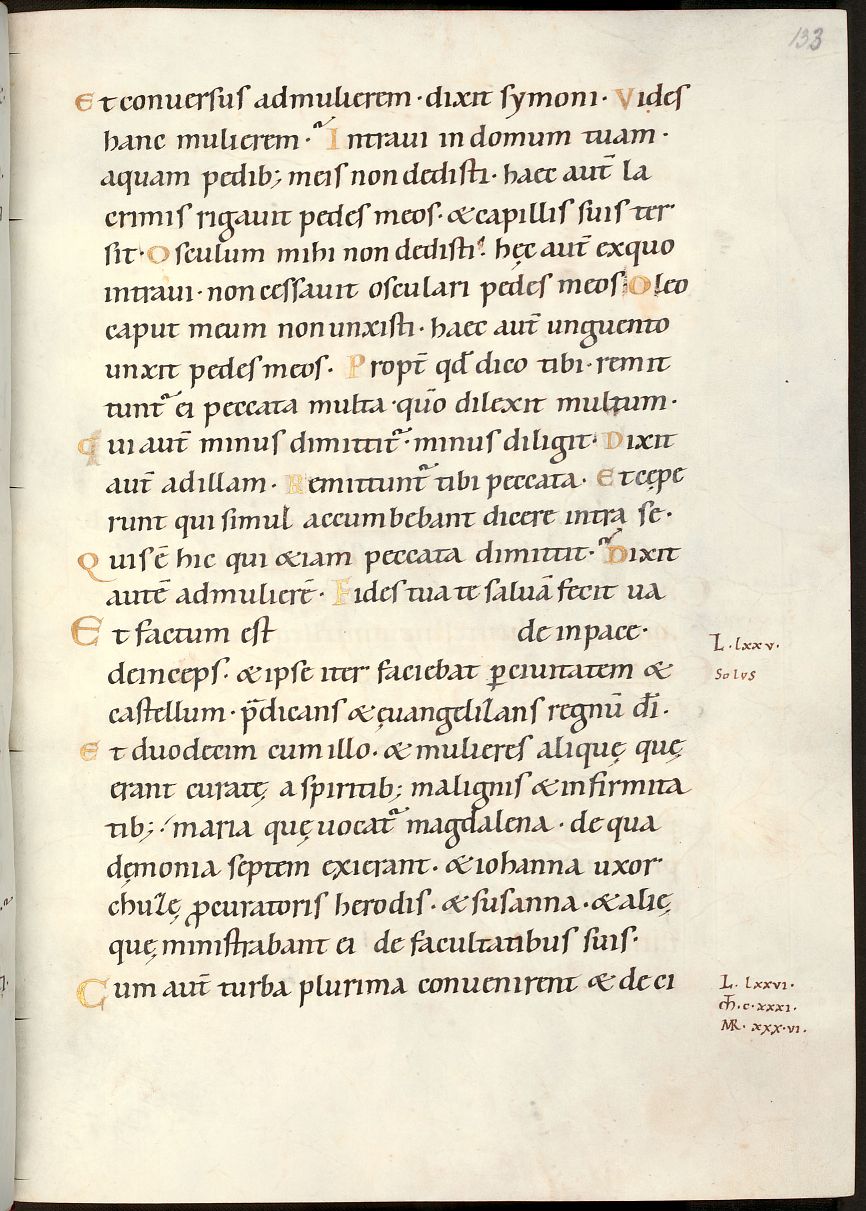 133
Et conuersus ad mulierem · dixit symoni · Vides
hanc mulierem · Intraui in domum tuam ·
aquam pedib; meis non dedisti · haec aut̄ la
crimis rigauit pedes meos · & capillis suis ter
sit · Osculum mihi non dedisti · hęc aut̄ exquo
intraui · non cessauit osculari pedes meos Oleo
caput meum non unxisti · haec aut̄ unguento
unxit pedes meos · Propt̄ qđ dico tibi · remit
tunt᷑ ei peccata multa · quō dilexit multum ·
Qui aut̄ minus dimittit᷑ · minus diligit · Dixit
aut̄ ad illam · Remittunt᷑ tibi peccata · Et cępe
runt qui simul accumbebant dicere intra se ·
Quis ē hic qui &iam peccata dimittit · Dixit
autē ad mulierē · Fides tua te saluā fecit ua
Et factum est de in pace ·
L · lxxv ·
deinceps · & ipse iter faciebat ꝑ ciuitatem &
solus
castellum · p̄dicans & ęuangelizans regnū dī ·
Et duodecim cum illo · & mulieres alique̜ que̜
erant curate̜ a spiritib; malignis & infirmita
tib; · maria que̜ uocat᷑ magdalena · de qua
dęmonia septem exierant · & iohanna uxor
chuze̜ ꝓcuratoris herodis · & susanna · & alie̜
que̜ ministrabant ei de facultatibus suis ·
Cum aut̄ turba plurima conuenirent & de ci
L · lxxvi ·
m̄h · c · xxxi ·
MR · xxx · vi ·